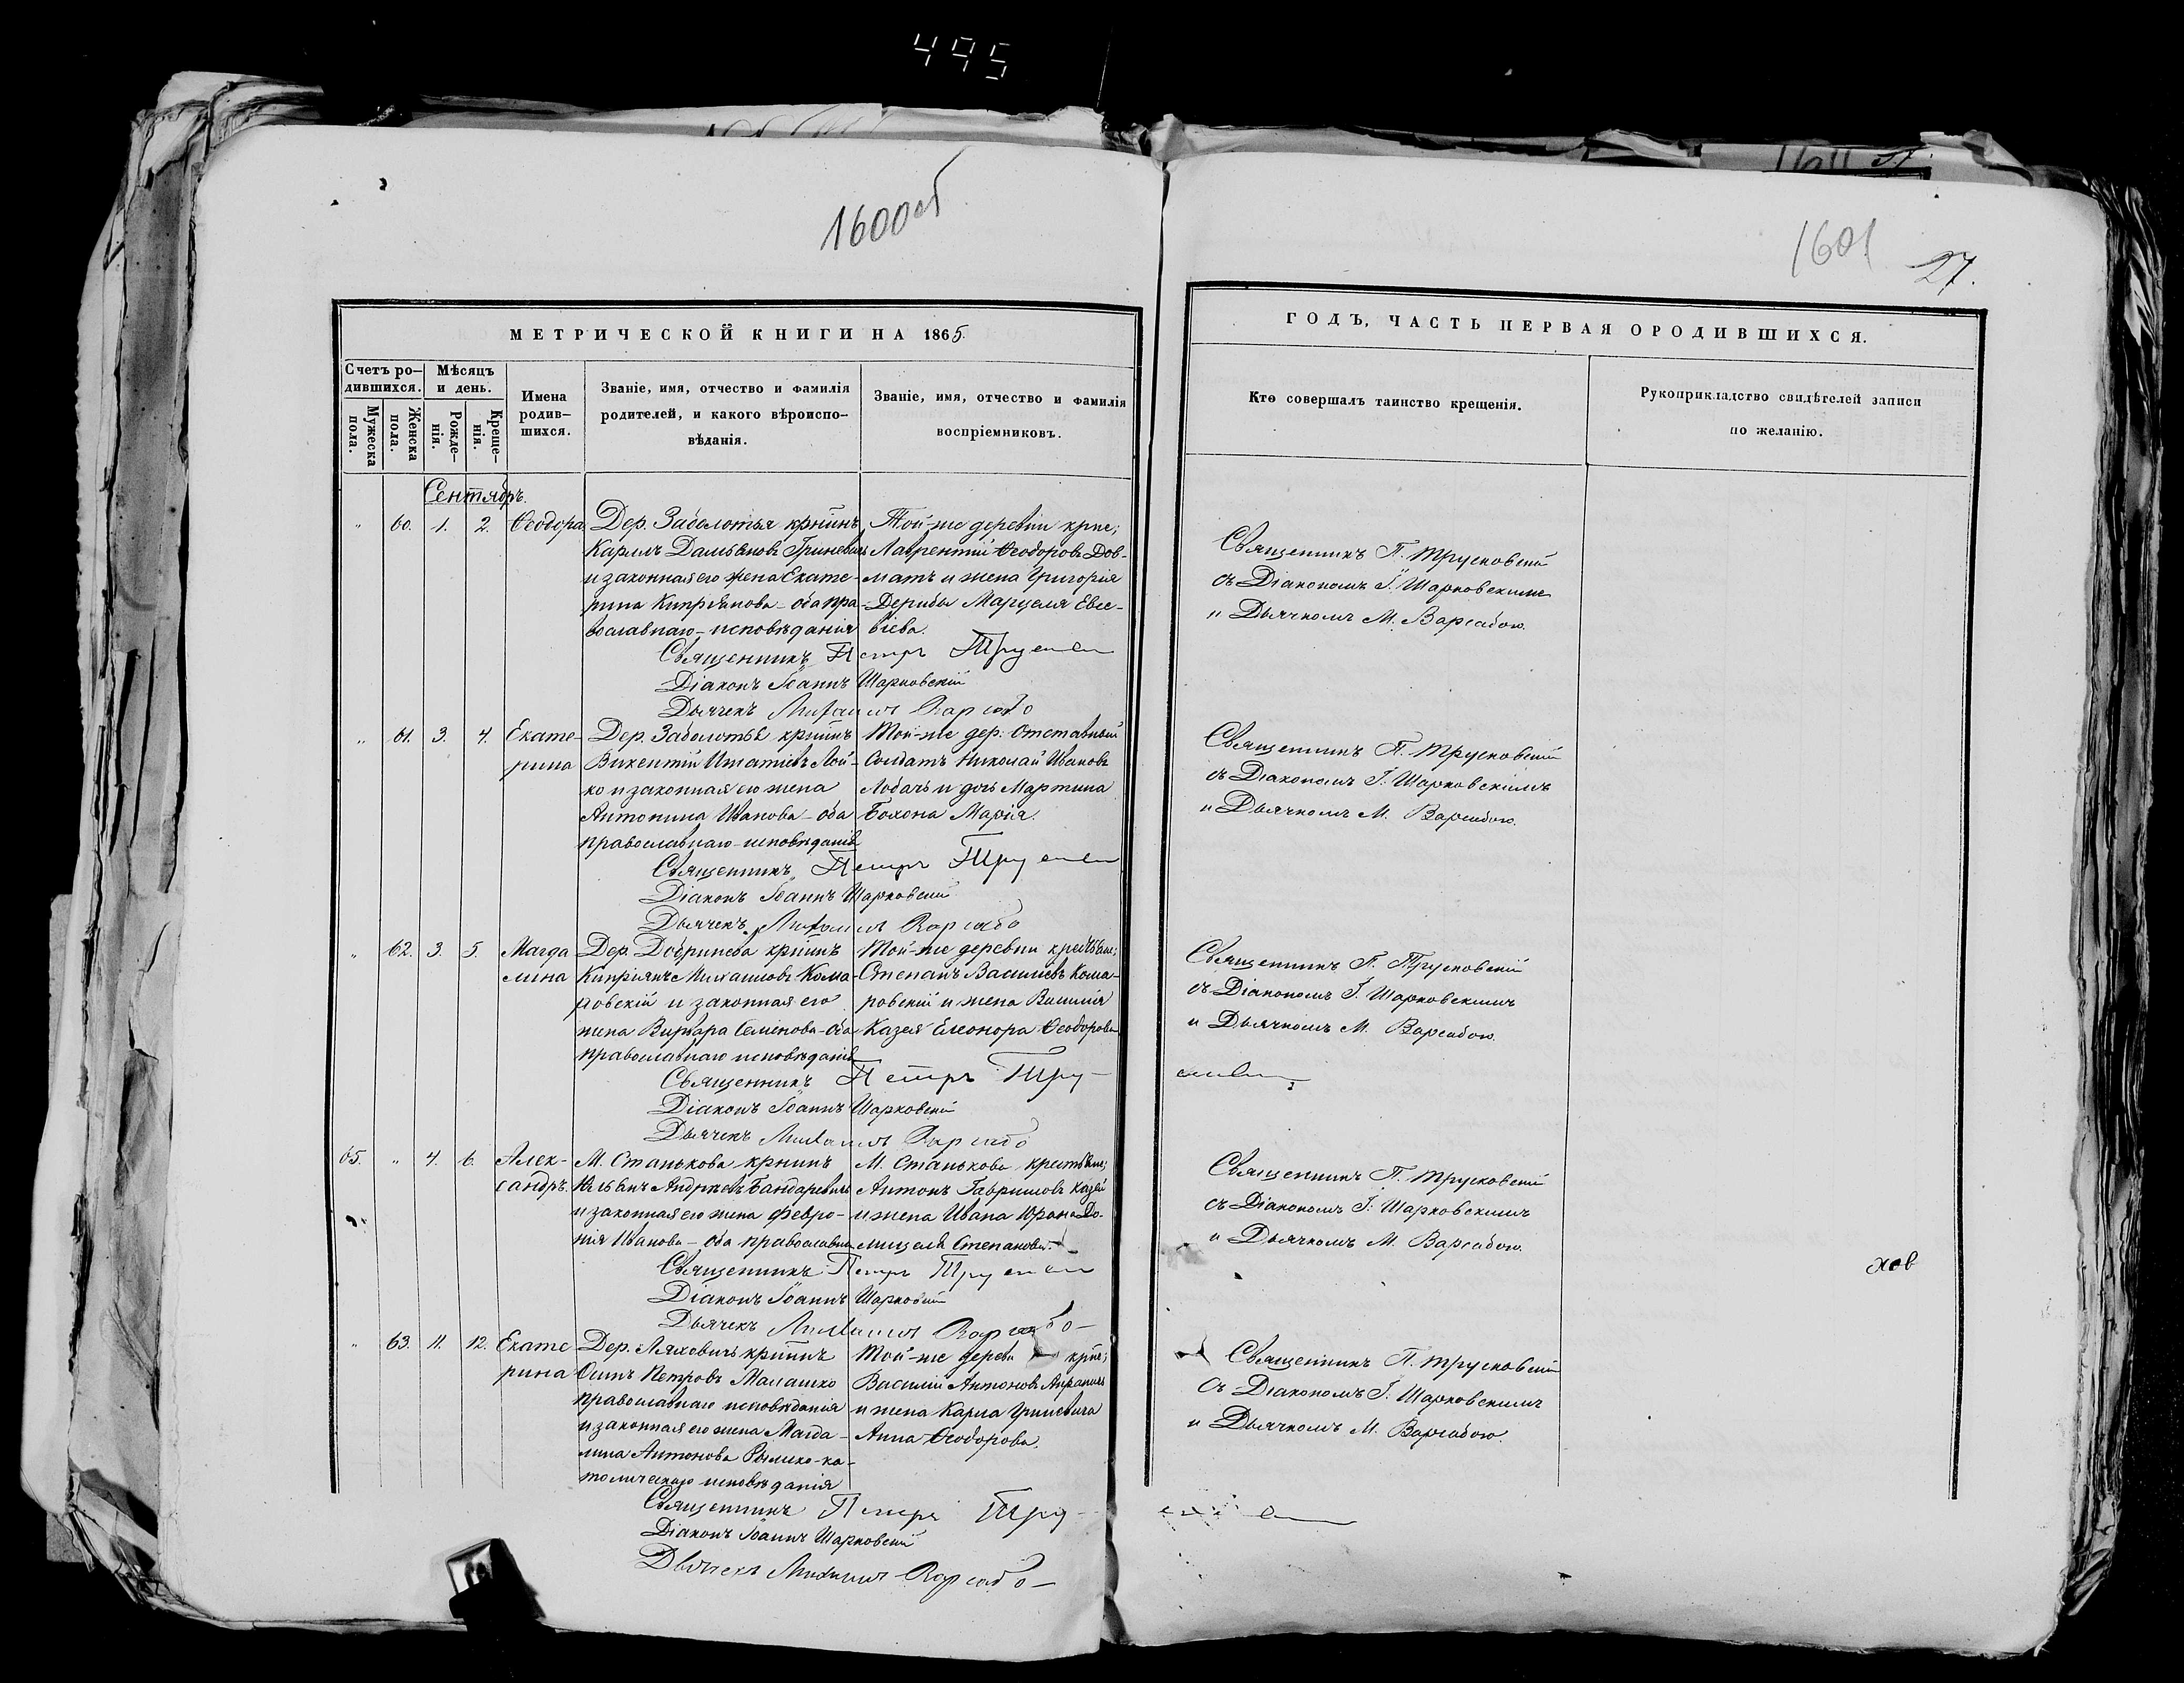 495
1600об
1601
27.
МЕТРИЧЕСКОЙ КНИГИ НА 1865.
Счетъ родившихся.
Мужеска пола.
Женска пола.
Мѣсяцъ и день.
Рожденія.
Крещенія.
Имена родившихся.
Званіе, имя, отчество и фамилія
родителей, и какого вѣроиспо-
вѣданія.
Званіе, имя, отчество и фамилія
воспріемниковъ.
ГОДЪ, ЧАСТЬ ПЕРВАЯ О РОДИВШИХСЯ.
Кто совершалъ таинство крещенія.
Рукоприкладство свидѣтелей записи
по желанію.
Сентябрь.
" 60. 1. 2. Ѳеодора
Дер. Заболотья крнинъ
Карлъ Дамьяновъ Гриневичъ
и законная его жена Екате-
рина Кипріянова - оба пра-
вославнаго - исповѣданія
Той-же деревни крне;
Лаврентій Ѳеодоровъ Дов-
матъ и жена Григорія
Дерибы Марцеля Евсе-
віева.
Священникъ П. Трусковскій
съ Діакономъ І. Шарковскимъ
и Дьячкомъ М. Варсабою.
Священникъ Петръ
Діаконъ Іоаннъ Шарковскій
Дьячекъ Михаилъ Варсабо
" 61. 3. 4. Екате-
рина
Дер. Заболотья крнинъ
Викентій Игнатіевъ Лой-
ко и законная его жена
Антонина Иванова - оба
православнаго - исповѣданія
Той-же дер. Отставный
Солдатъ Николай Ивановъ
Лобачъ и дочь Мартина
Бохона Марія.
Священникъ П. Трусковскій
съ Діакономъ І. Шарковскимъ
и Дьячкомъ М. Варсабою.
Священникъ Петръ
Діаконъ Іоаннъ Шарковскій
Дьячекъ Михаилъ Варсабо
" 62. 3. 5. Магда
лина
Дер. Добринева крнинъ
Кипріянъ Михаиловъ Кома-
ровскій и законная его
жена Варвара Семенова - оба
православнаго исповѣданія
Той-же деревни крестьяне;
Степанъ Василіевъ Кома-
ровскій и жена Василія
Казея Елеонора Ѳеодорова
Священникъ П. Трусковскій
съ Діакономъ І. Шарковскимъ
и Дьячкомъ М. Варсабою.
Священникъ Петръ Тру-
Діаконъ Іоаннъ Шарковскій
Дьячекъ Михаилъ Варсабо
65. " 4. 6. Алек-
сандръ.
М. Станькова крнинъ
Андреевъ Бандаревичъ
и законная его жена Февро-
нія Иванова - оба православн.
М. Станькова крестьяне;
Антонъ Гавриловъ Казей
и жена Ивана Юрана До-
мицеля Степанова.
Священникъ П. Трусковскій
съ Діакономъ І. Шарковскимъ
и Дьячкомъ М. Варсабою.
Священникъ Петръ
Діаконъ Іоаннъ Шарковскій
Дьячекъ Михаилъ Варсабо
" 63. 11. 12. Екате
рина
Дер. Ляховичь крнинъ
Осипъ Петровъ Малашко
православнаго исповѣданія
и законная его жена Магда-
лина Антонова Римско-ка-
толическаго исповѣданія
Той-же дерев крне;
Василій Антоновъ
и жена Карла Гриневича
Анна Ѳеодорова.
Священникъ П. Трусковскій
съ Діакономъ І. Шарковскимъ
и Дьячкомъ М. Варсабою.
Священникъ Петръ Тру-
Діаконъ Іоаннъ Шарковскій
Дьячекъ Михаилъ Варсабо